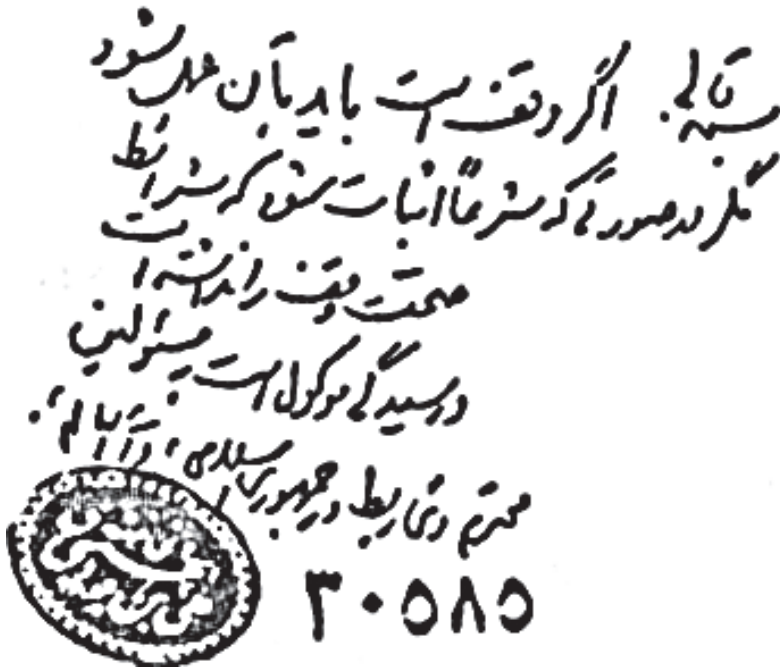 بسمه تعالی. اگر وقف است باید بآن عمل شود
مگر در صورتی که شرعاً اثبات شود که شرائط
صحت وقف را نداشته است
و رسیدگی موکول است بمسئولین
محترم ذی ربط در جمهوری اسلامی،
۳۰۵۸۵